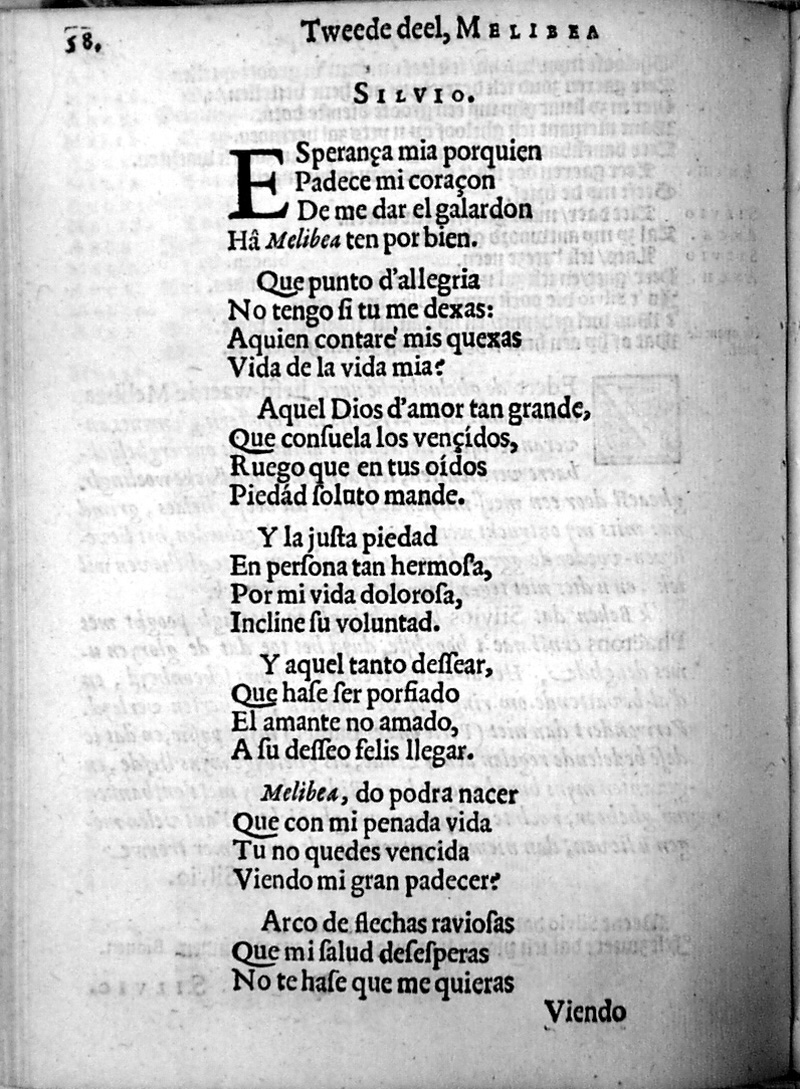 58.
Tweede deel, MELIBEA
SILVIO.
ESperança mia porquien
Padece mi coraçon
De me dar el galardon
Hâ Melibea ten por bien.
Que punto d'allegria
No tengo ſi tu me dexas:
Aquien contare' mis quexas
Vida de la vida mia?
Aquel Dios d'amor tan grande,
Que conſuela los vençídos,
Ruego que en tus oídos
Piedád ſoluto mande.
Y la juſta piedad
En perſona tan hermoſa,
Por mi vida doloroſa,
Incline ſu voluntad.
Y aquel tanto deſſear,
Que haſe ſer porfiado
El amante no amado,
A ſu deſſeo felis llegar.
Melibea, do podra nacer
Que con mi penada vida
Tu no quedes vencida
Viendo mi gran padecer?
Arco de flechas ravioſas
Que mi ſalud deſeſperas
No te haſe que me quieras
Viendo